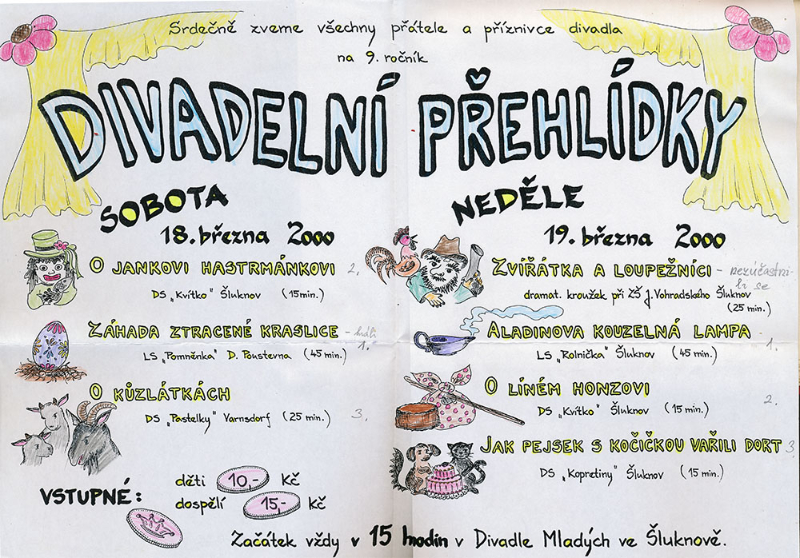 Srdečně zveme všechny přátele a příznivce divadla
na 9. ročník
DIVADELNÍ PŘEHLÍDKY
SOBOTA
18. března 2000
O JANKOVI HASTRMÁNKOVI 2.
DS „Kvítko" Šluknov (15 min.)
ZÁHADA ZTRACENÉ KRASLICE - 1.
LS „Pomněnka" D. Poustevna (45 min.)
O KŮZLÁTKÁCH
DS „Pastelky" Varnsdorf (25 min.) 3.
NEDĚLE
19. března 2000
ZVÍŘÁTKA A LOUPEŽNÍCI - nezúčastni-
li se
dramat. kroužek při ZŠ J. Vohradského Šluknov
(25 min.)
ALADINOVA KOUZELNÁ LAMPA - 1.
LS „Rolnička" Šluknov (45 min.)
O LÍNÉM HONZOVI 2.
DS „Kvítko" Šluknov (15 min.)
JAK PEJSEK S KOČIČKOU VAŘILI DORT 3.
DS „Kopretiny" Šluknov (15 min.)
VSTUPNÉ: děti 10,- Kč
dospělí 15,- Kč
Začátek vždy v 15 hodin v Divadle Mladých ve Šluknově.